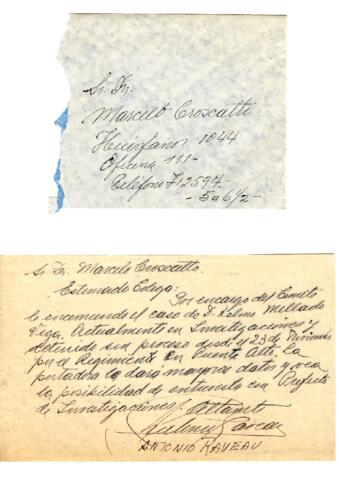 Sr. Dr.
Marcelo Croscatti
Huérfanos 1044
Oficina 111-
Teléfono 712594.-
- 5 a 6 1/2 -
Sr. Dr. Marcelo Croscatto.
Estimado Colega:
Por encargo del Comité
le encomiendo el caso de D. Mellado
Vega, Actualmente en Investigaciones y
detenido sin proceso desde el 23 de Diciembre
por el Regimiento en Puente Alto. La
portadora le dará mayores datos y
la posibilidad de entrevista con Prefecto
de Investigaciones. Attamte
ANTONIO RAVEAU